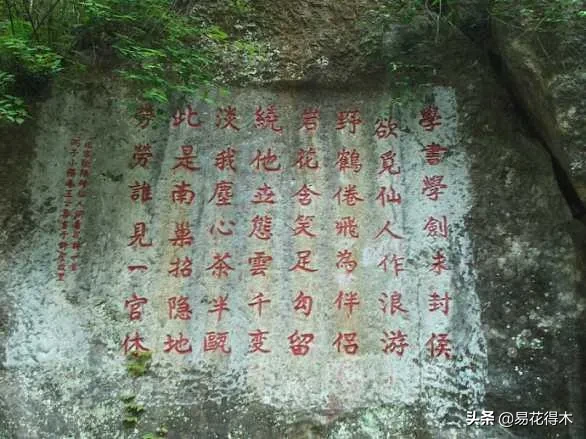 學書學劍未封侯
欲覓仙人作浪游
野鶴倦飛為伴侶
岩花含笑足勾留
繞他世態雲千变
淡我塵心茶半甌
此是南巢招隐地
劳勞誰見一官休
头条 @易花得木